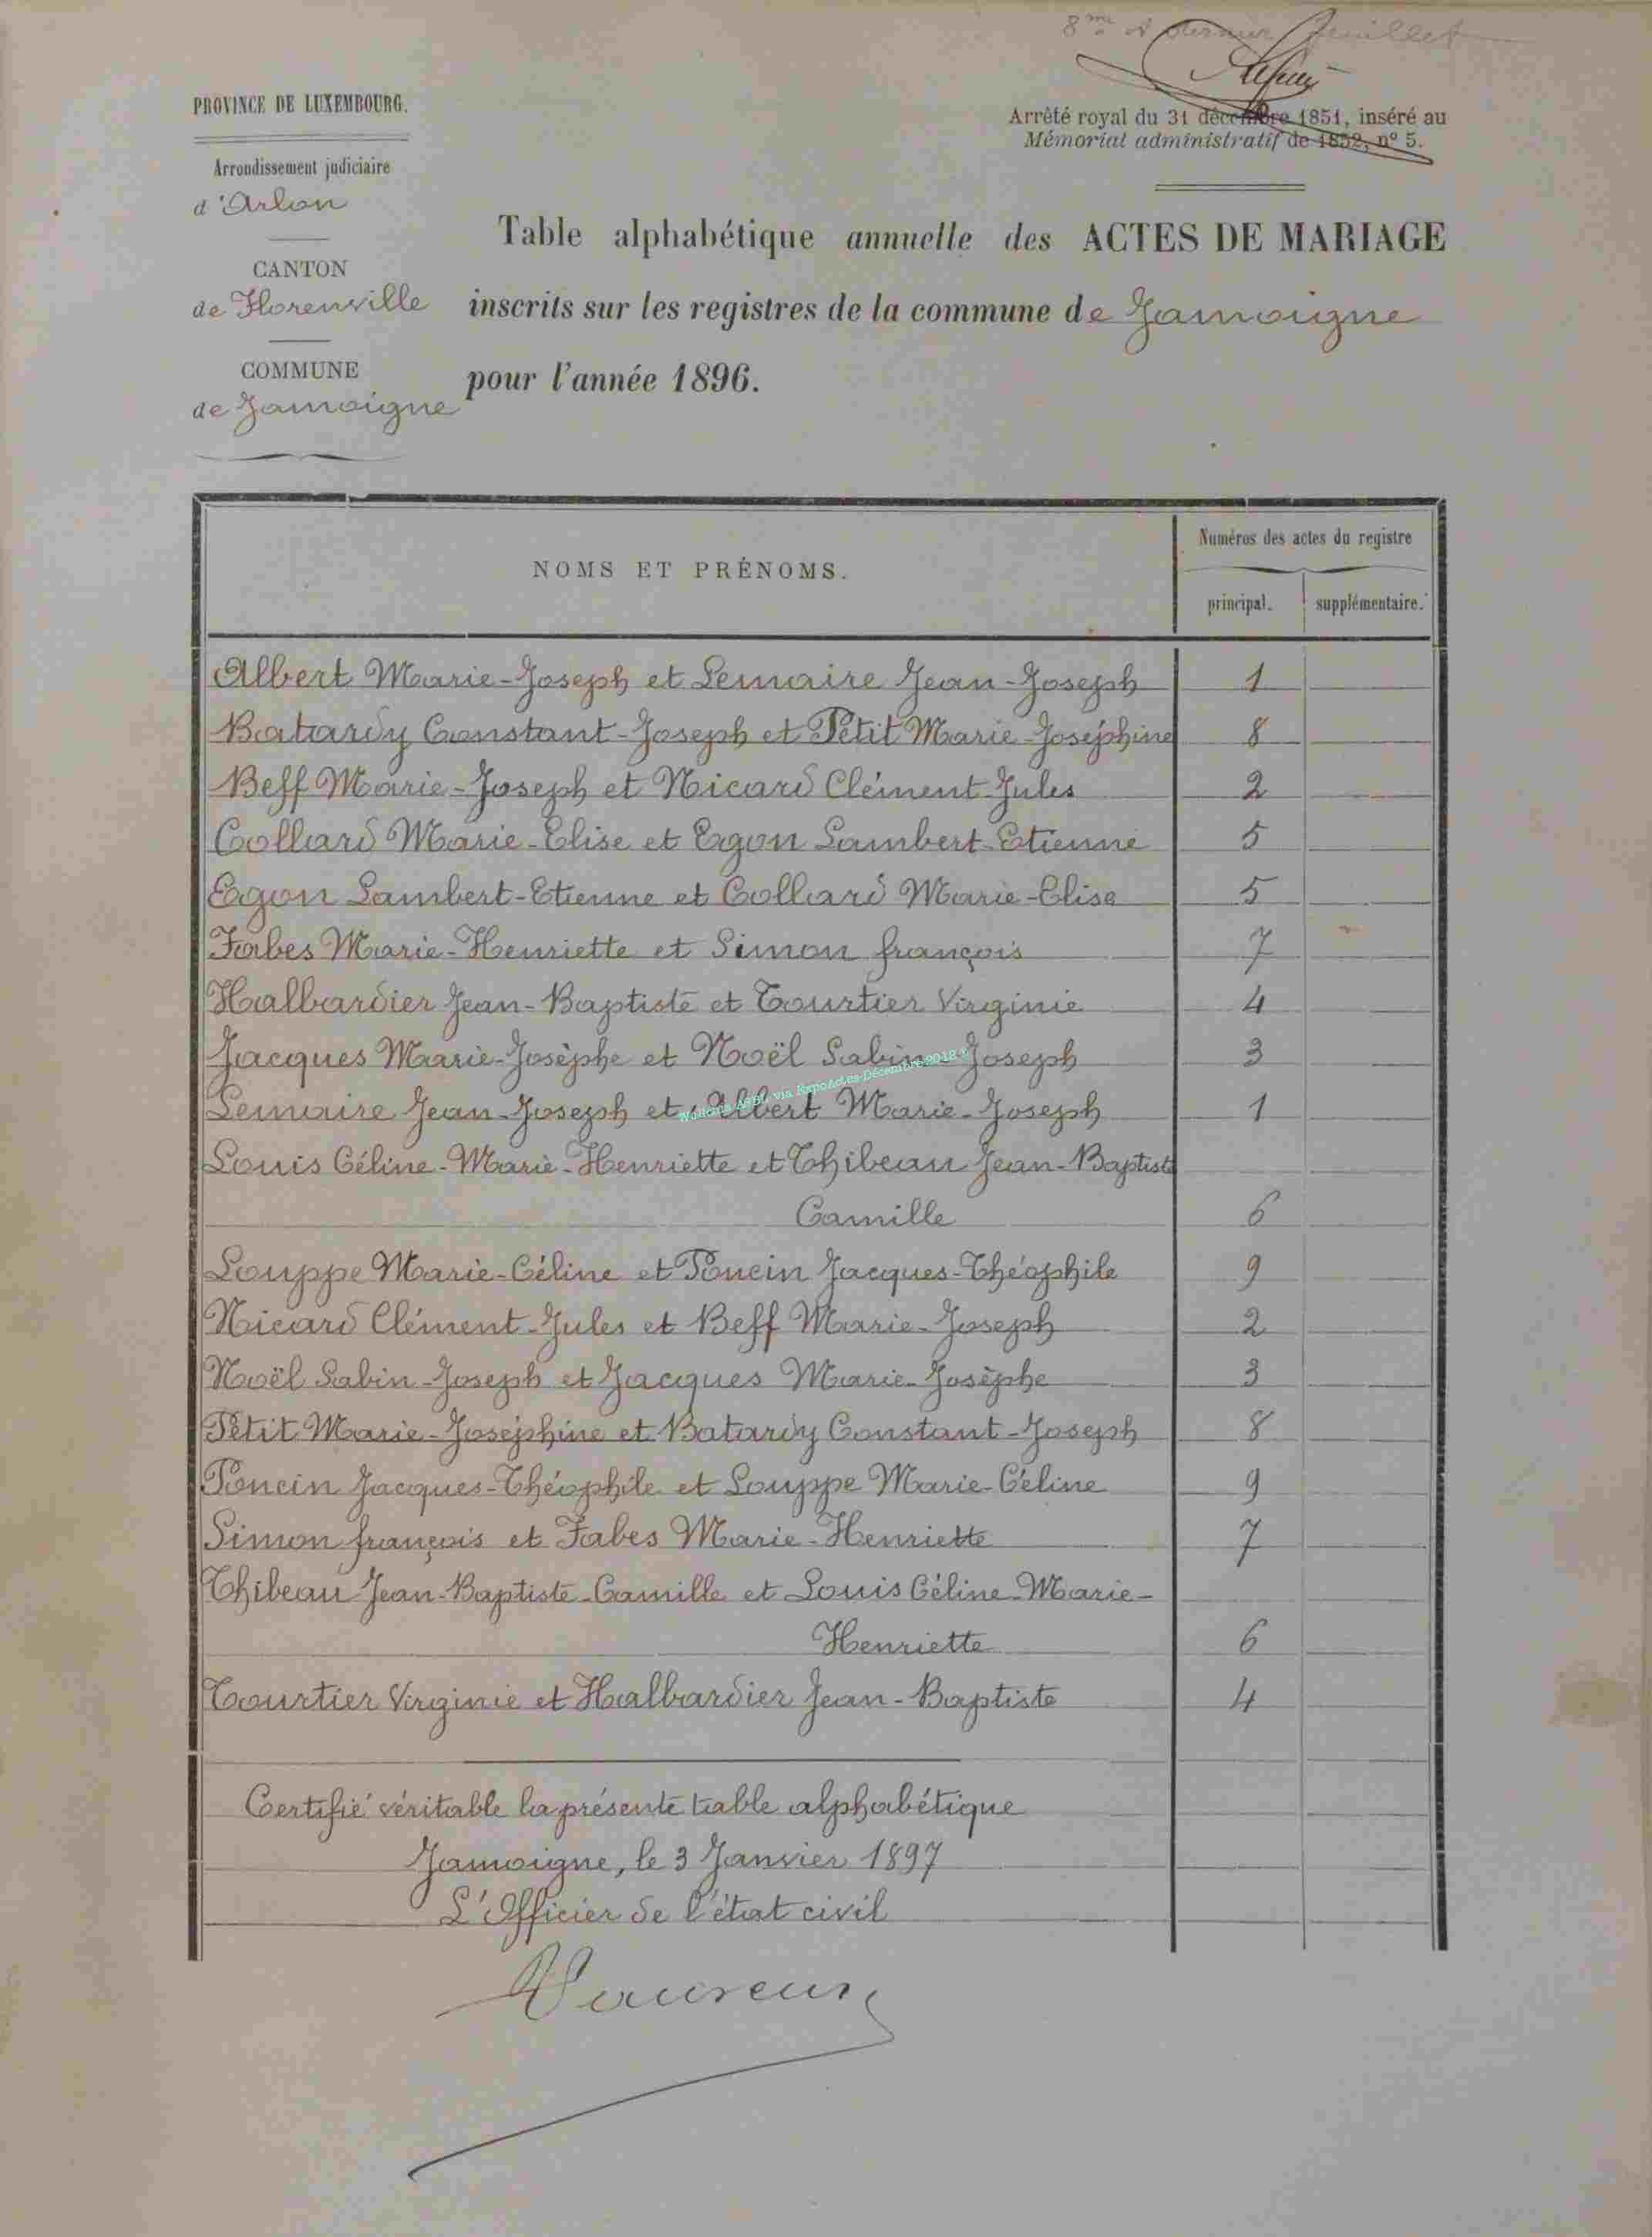 8me et dernier feuillet
PROVINCE DE LUXEMBOURG.
Arrêté royal du 31 décembre 1851, inséré au
Mémorial administratif de 1852, n° 5.
Arrondissement judiciaire
d'Arlon
Table alphabétique annuelle des ACTES DE MARIAGE
CANTON
de Florenville
inscrits sur les registres de la commune de Jamoigne
COMMUNE
pour l'année 1896.
de Jamoigne
NOMS ET PRÉNOMS.
Numéros des actes du registre
principal. supplémentaire.
Albert Marie-Joseph et Lemaire Jean-Joseph 1
Batardy Constant-Joseph et Petit Marie-Joséphine 8
Beff Marie-Joseph et Nicard Clément-Jules 2
Collard Marie-Elise et Egon Lambert-Etienne 5
Egon Lambert-Etienne et Collard Marie-Elise 5
Forbes Marie-Henriette et Simon françois 7
Halbardier Jean-Baptiste et Tourtier Virginie 4
Jacques Marie-Josèphe et Noël Sabin-Joseph 3
Lemaire Jean-Joseph et Albert Marie-Joseph 1
Louis Céline-Marie-Henriette et Thibeau Jean-Baptiste
Camille 6
Louppe Marie-Céline et Poncin Jacques-Théophile 9
Nicard Clément-Jules et Beff Marie-Joseph 2
Noël Sabin-Joseph et Jacques Marie-Josèphe 3
Petit Marie-Joséphine et Batardy Constant-Joseph 8
Poncin Jacques-Théophile et Louppe Marie-Céline 9
Simon françois et Fabes Marie-Henriette 7
Thibeau Jean-Baptiste-Camille et Louis Céline-Marie-
Henriette 6
Tourtier Virginie et Halbardier Jean-Baptiste 4
Certifié véritable la présente table alphabétique
Jamoigne, le 3 Janvier 1897
L'Officier de l'état civil
via ExpoActes-Décembre 2018